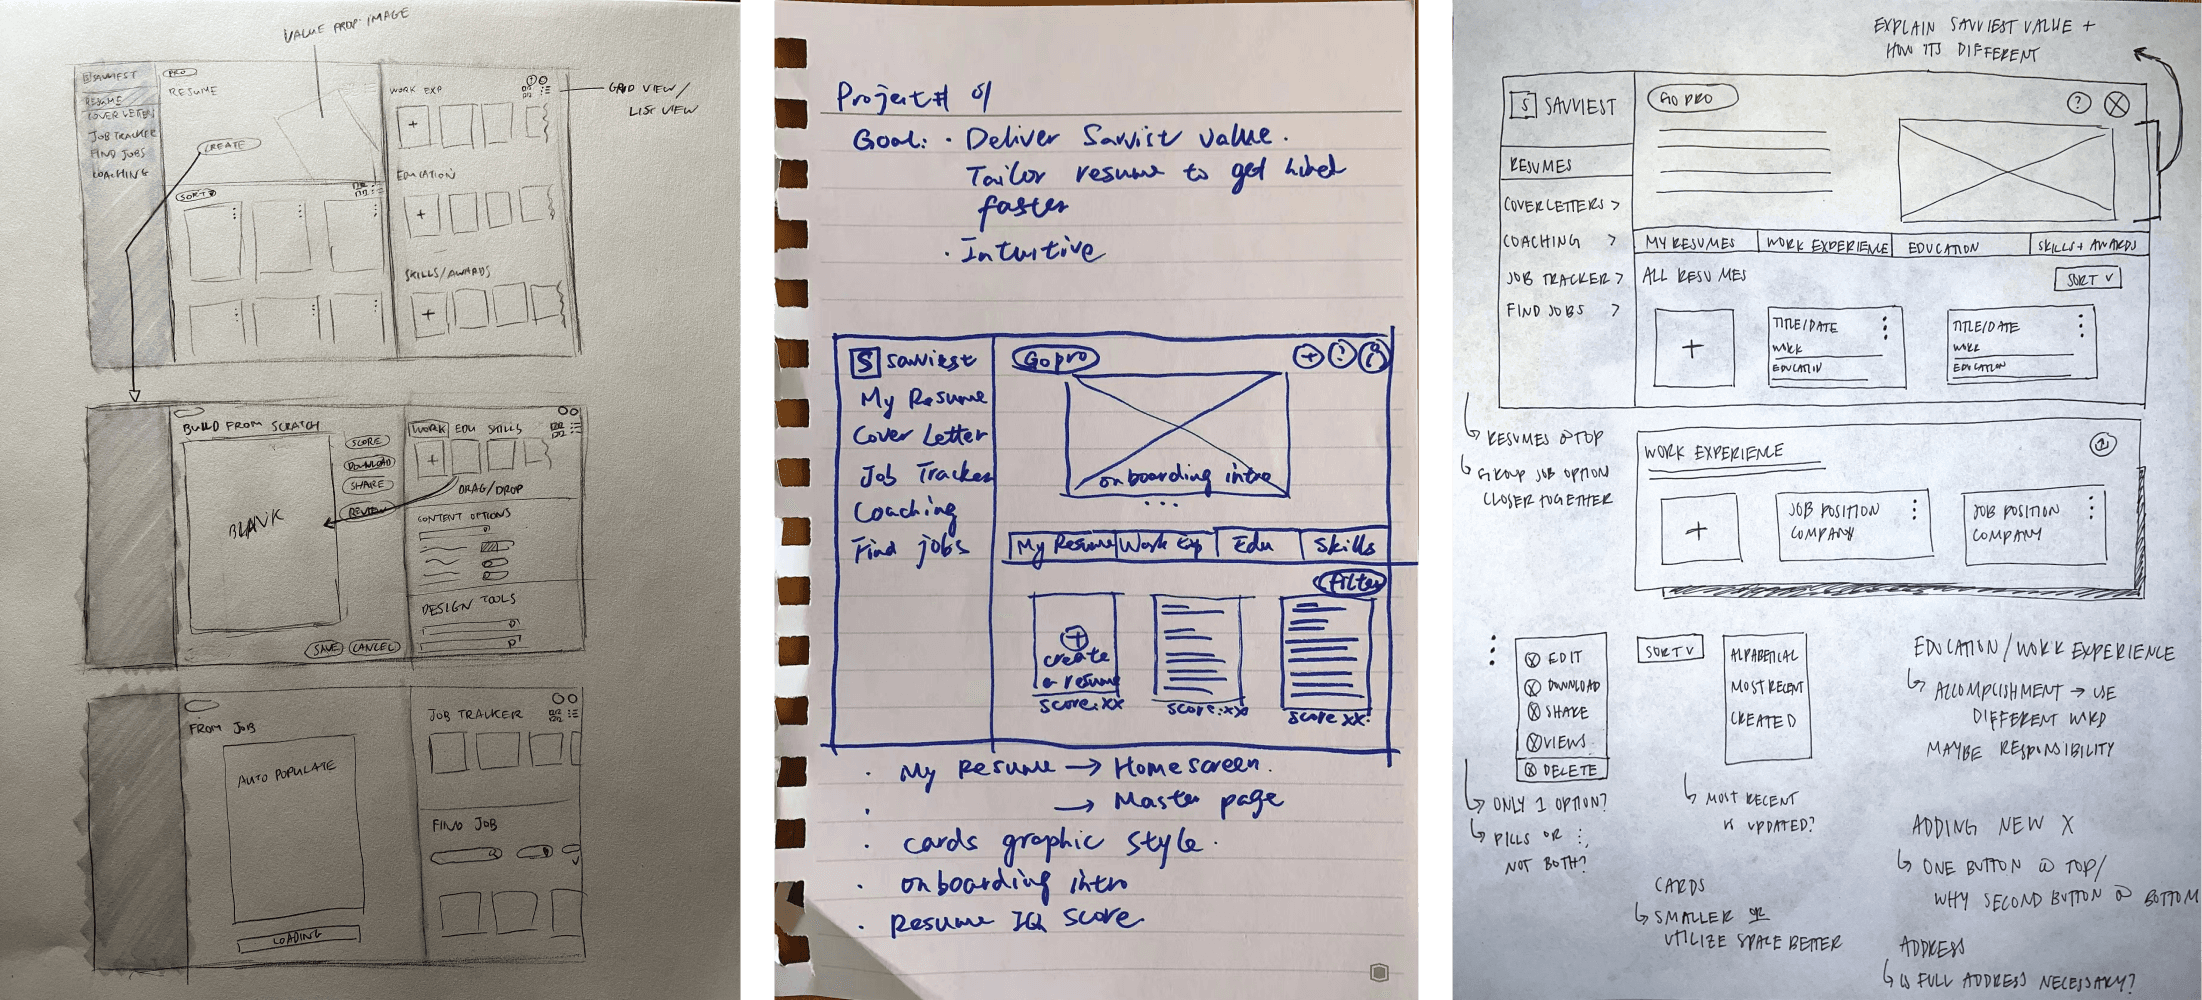 VALUE PROP. IMAGE
SAVVIEST
PRO
RESUME
RESUME
COVER LETTER
JOB TRACKER
FIND JOBS
COACHING
CREATE
SORT
WORK EXP
EDUCATION
SKILLS/AWARDS
GRID VIEW/
LIST VIEW
BUILD FROM SCRATCH
BLANK
SCORE
DOWNLOAD
SHARE
REVIEW
SAVE
CANCEL
WORK
EDU
SKILLS
+
DRAG/DROP
CONTENT OPTIONS
DESIGN TOOLS
FROM JOB
AUTO POPULATE
LOADING
JOB TRACKER
FIND JOB
Project# 01
Goal: · Deliver Savvist value.
Tailor resume to get hired
faster
· Intuitive
S savviest
My Resume
Cover Letter
Job Tracker
Coaching
Find jobs
Go pro
+ ?
onboarding intro
...
My Resume
Work Exp
Edu
Skills
Filter
+
create
a resume
score:xx
score:xx
score xx:
· My Resume → Homescreen.
· → Master page
· cards graphic style.
· onboarding intro
· Resume IQ score
EXPLAIN SAVVIEST VALUE +
HOW ITS DIFFERENT
S SAVVIEST
GO PRO
?
RESUMES
COVER LETTERS >
COACHING >
JOB TRACKER >
FIND JOBS >
MY RESUMES
WORK EXPERIENCE
EDUCATION
SKILLS + AWARDS
ALL RESUMES
SORT V
+
TITLE/DATE
WORK
EDUCATIN
TITLE/DATE
WORK
EDUCATION
RESUMES @ TOP
GROUP JOB OPTION
CLOSER TOGETHER
WORK EXPERIENCE
+
JOB POSITION
COMPANY
JOB POSITION
COMPANY
EDIT
DOWNLOAD
SHARE
VIEWS
DELETE
ONLY 1 OPTION?
PILLS OR ⋮,
NOT BOTH?
SORT V
ALPHABETICAL
MOST RECENT
CREATED
MOST RECENT
IS UPDATED?
CARDS
SMALLER OR
UTILIZE SPACE BETTER
EDUCATION/WORK EXPERIENCE
ACCOMPLISHMENT → USE
DIFFERENT WORD
MAYBE RESPONSIBILITY
ADDING NEW X
ONE BUTTON @ TOP/
WHY SECOND BUTTON @ BOTTOM
ADDRESS
IS FULL ADDRESS NECESSARY?